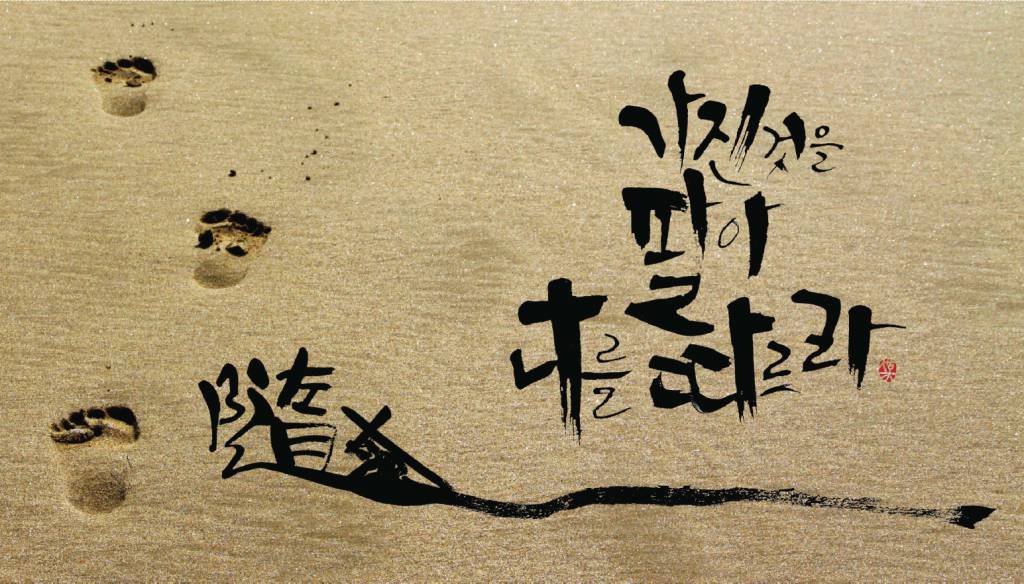 가진것을
팔아
나를 따르라
隨